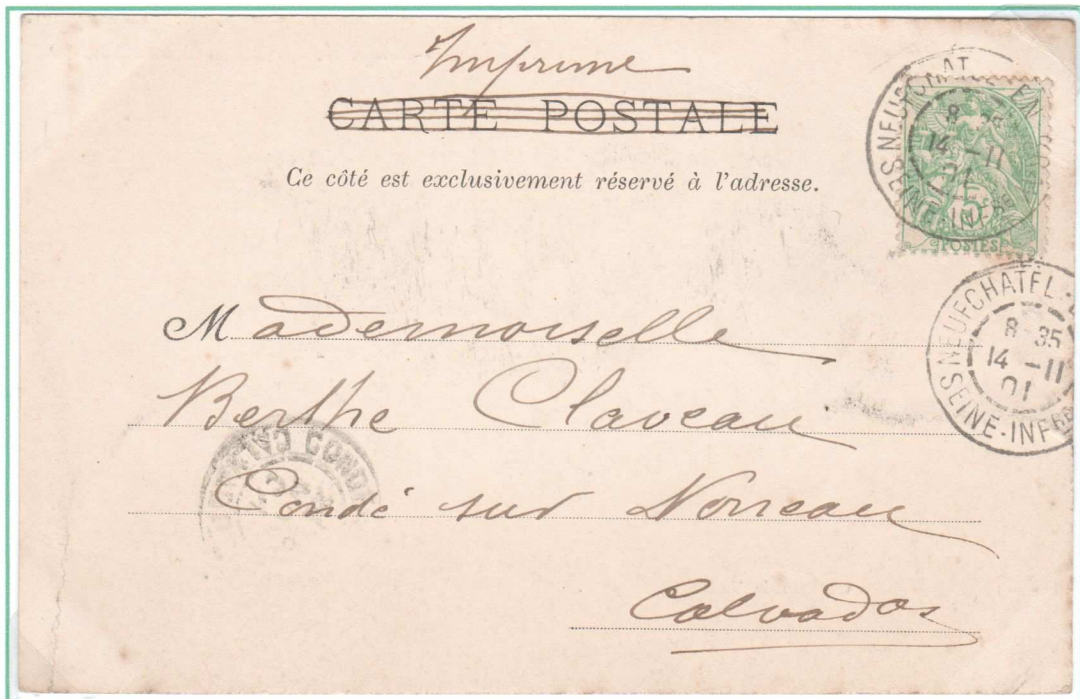 Imprimé
CARTE POSTALE
Ce côté est exclusivement réservé à l'adresse.
NEUFCHATEL-EN
8 35
14 -11
01
SEINE-INFRE
5
POSTES
Mademoiselle
NEUFCHATEL-
8 35
14 -11
01
SEINE-INFRE
Berthe Claveau
CONDÉ
Condé sur Noireau
Calvados